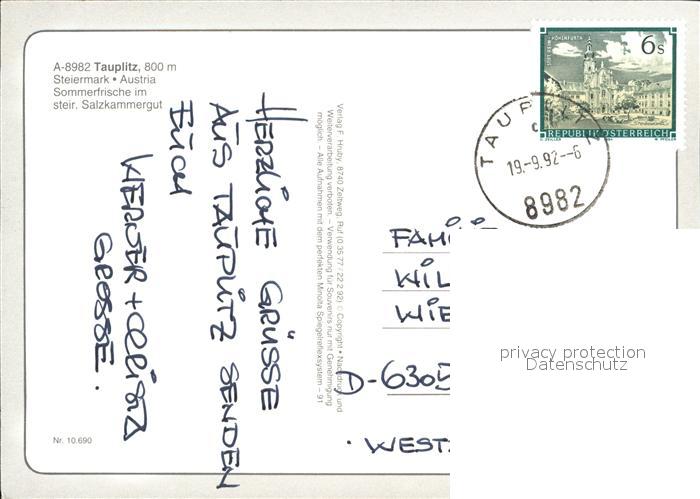 A-8982 Tauplitz, 800 m
Steiermark • Austria
Sommerfrische im
steir. Salzkammergut
HERZLICHE GRÜSSE
AUS TAUPLITZ SENDEN
EUCH
WERNER +
GROSSE.
Verlag F. Hruby, 8740 Zeltweg, Ruf (0 35 77 / 22 2 92) © Copyright • Nachdruck und
Weiterverarbeitung verboten. – Verwendung für Souvenirs nur mit Genehmigung
möglich. – Alle Aufnahmen mit dem perfekten Minolta Spiegelreflexsystem – 91
Nr. 10.690
STIFT REIN-HOHENFURTH
6s
REPUBLIK ÖSTERREICH
TAUPLITZ
19.-9.92--6
8982
FAMI
WIL
WIE
D-6305
WEST
privacy protection
Datenschutz